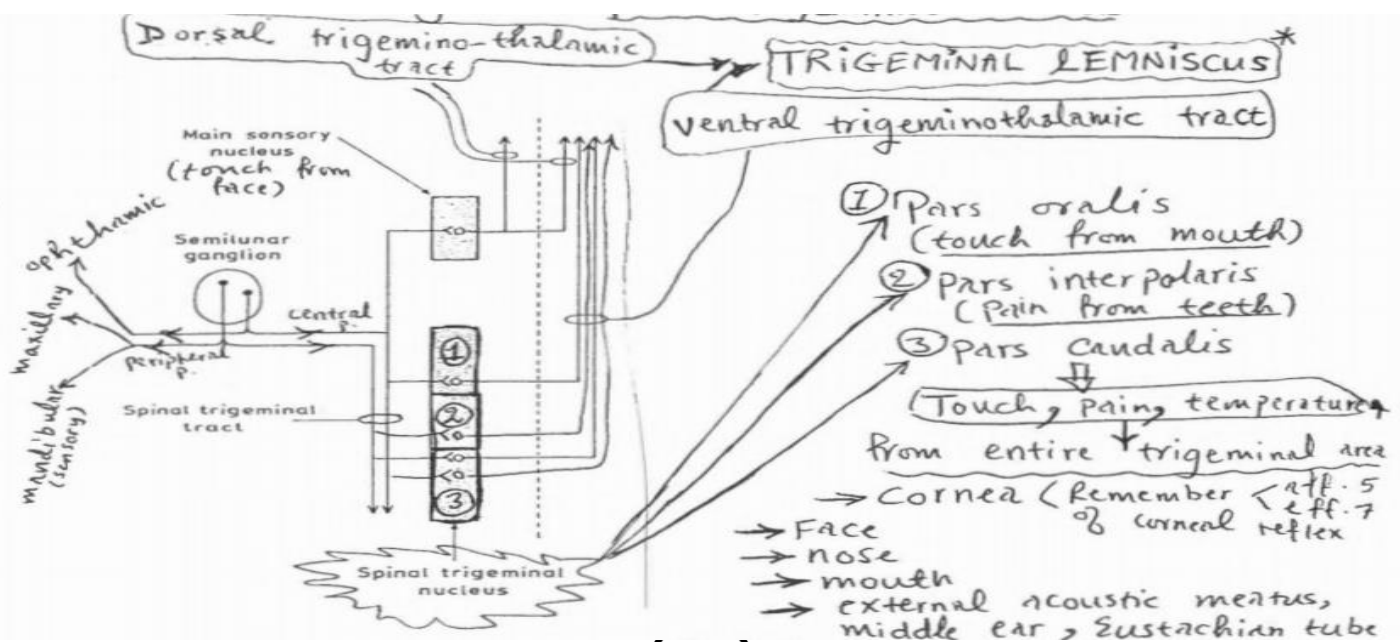 Dorsal trigemino-thalamic
tract
TRIGEMINAL LEMNISCUS*
Ventral trigeminothalamic tract
Main sensory
nucleus
(touch from
face)
Semilunar
ganglion
ophthamic
maxillary
mandibular
(sensory)
central
p.
peripheral
p.
Spinal trigeminal
tract
1
2
3
Spinal trigeminal
nucleus
1 Pars oralis
(touch from mouth)
2 Pars interpolaris
(Pain from teeth)
3 Pars caudalis
Touch, pain, temperature
from entire trigeminal area
→ Cornea (Remember aff. 5
eff. 7
of corneal reflex
→ Face
→ nose
→ mouth
→ external acoustic meatus,
middle ear, Eustachian tube